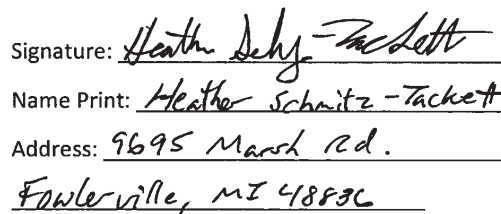 Signature: Heather Schz-Tackett
Name Print: Heather Schmitz-Tackett
Address: 9695 Marsh Rd.
Fowlerville, MI 48836